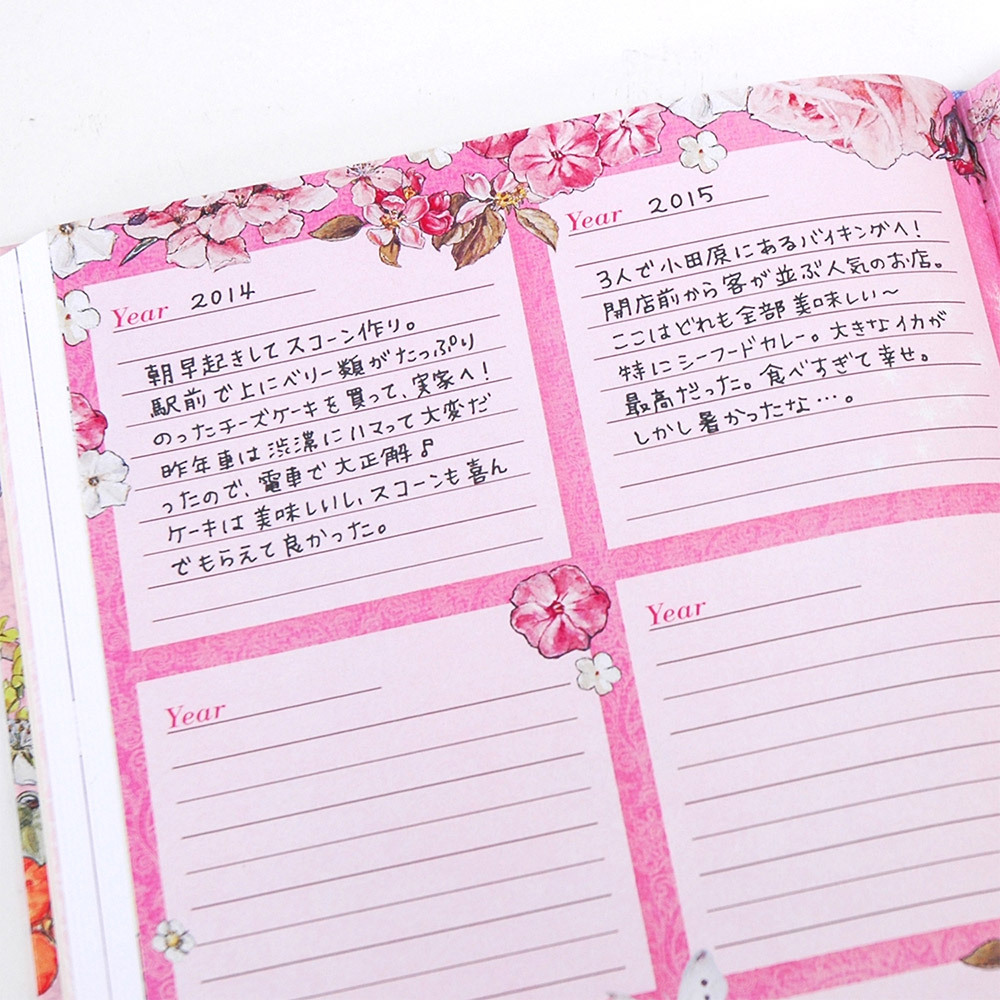 Year 2014
朝早起きしてスコーン作り。
駅前で上にベリー類がたっぷり
のったチーズケーキを買って、実家へ!
昨年車は渋滞にハマって大変だ
ったので、電車で大正解♪
ケーキは美味しいし、スコーンも喜ん
でもらえて良かった。
Year 2015
3人で小田原にあるバイキングへ!
開店前から客が並ぶ人気のお店。
ここはどれも全部美味しい~
特にシーフードカレー。大きなイカが
最高だった。食べすぎて幸せ。
しかし暑かったな…。
Year
Year